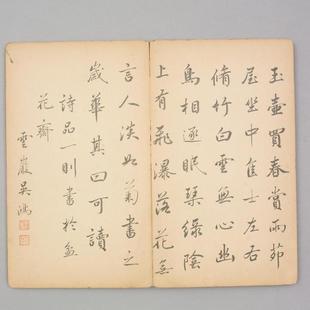 玉壺買春賞雨茆
屋坐中隹士左右
脩竹白雲𣄮心幽
鳥相逐眠琹綠陰
上有飛瀑落花無
言人淡如菊書之
歲華其曰可讀
詩品一則書於盆
花齋
雲巖吳鴻